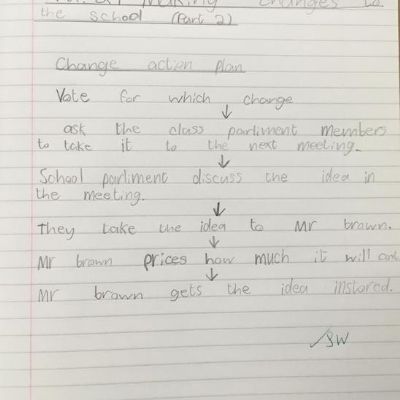 making changes to
the school (Part 2)
Change action plan
Vote for which change
↓
ask the class parliment members
to take it to the next meeting.
↓
School parliment discuss the idea in
the meeting.
↓
They take the idea to Mr brown.
↓
Mr brown prices how much it will cost
↓
Mr brown gets the idea instored.
✓SW